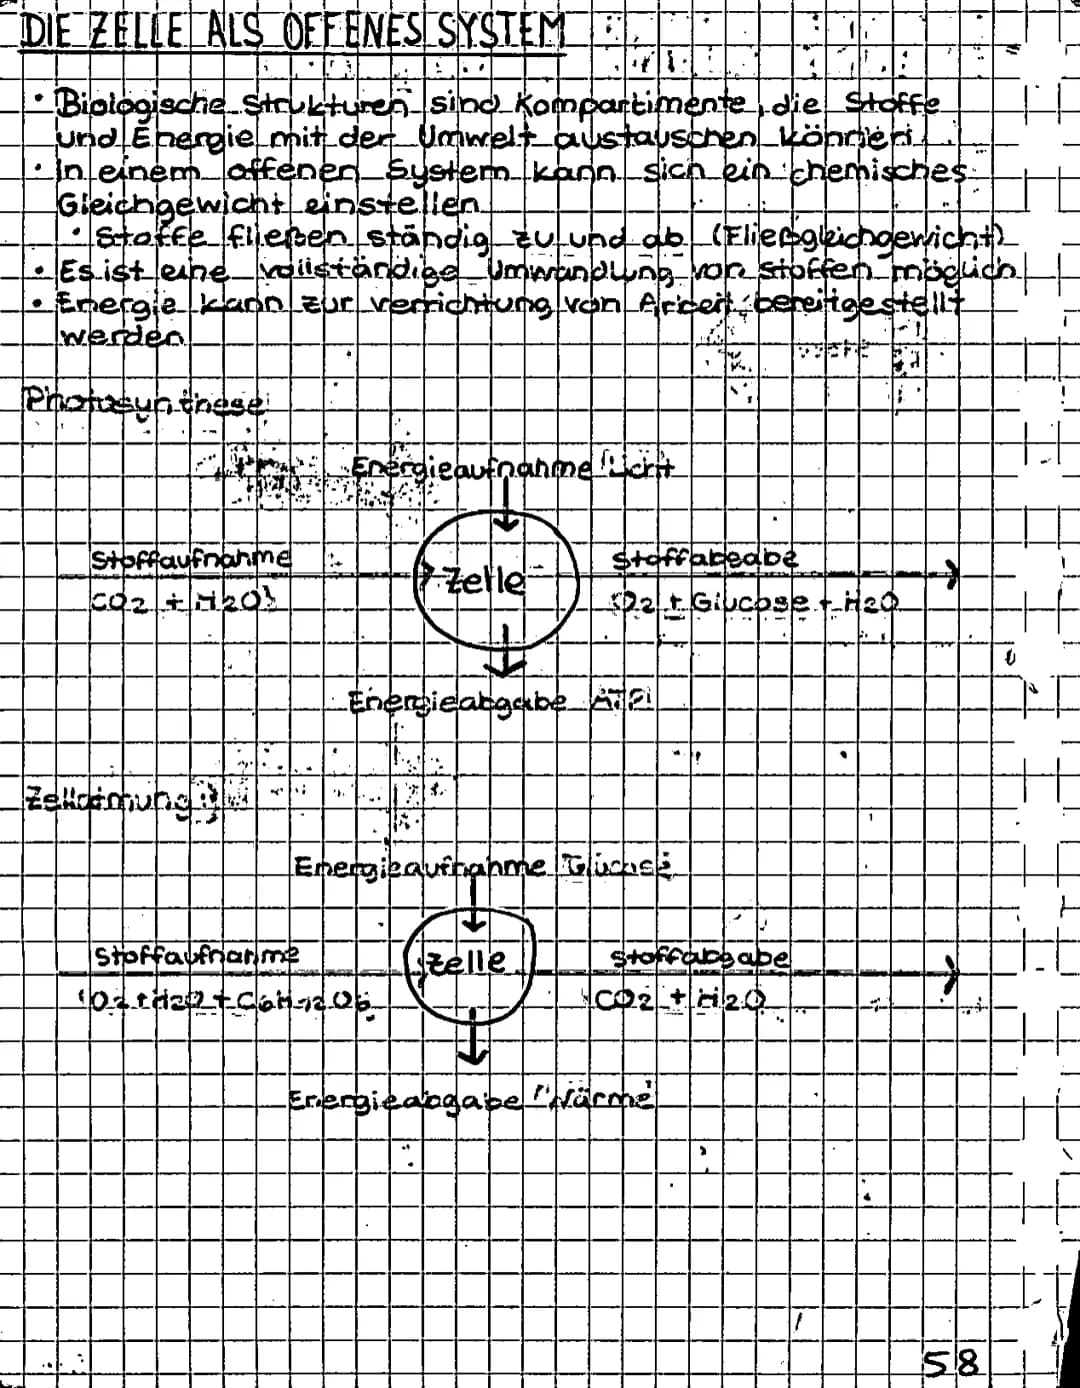 DIE ZELLE ALS OFFENES SYSTEM
• Biologische Strukturen sind Kompartimente, die Stoffe
und Energie mit der Umwelt austauschen können
• In einem offenen System kann sich ein chemisches
Gleichgewicht einstellen
• Stoffe fließen ständig zu und ab (Fließgleichgewicht)
• Es ist eine vollständige Umwandlung von Stoffen möglich
• Energie kann zur Verrichtung von Arbeit bereitgestellt
werden
Photosynthese
Energieaufnahme Licht
Stoffaufnahme
Zelle
Stoffabgabe
CO2 + H2O
O2 + Glucose + H2O
Energieabgabe ATP
Zellatmung
Energieaufnahme Glucose
Stoffaufnahme
Zelle
Stoffabgabe
O2 + H2O + C6H12O6
CO2 + H2O
Energieabgabe Wärme
58